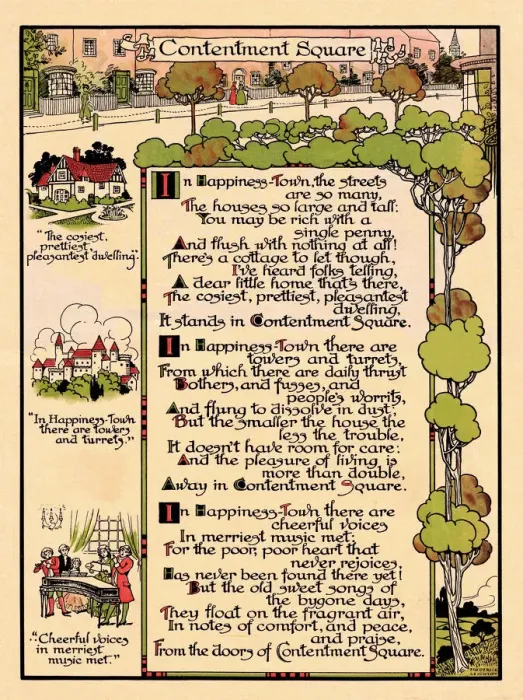 Contentment Square
In Happiness-Town, the streets
are so many,
The houses so large and tall:
You may be rich with a
single penny,
And flush with nothing at all!
There's a cottage to let though,
I've heard folks telling,
A dear little home that's there,
The cosiest, prettiest, pleasantest
dwelling,
It stands in Contentment Square.
In Happiness-Town there are
towers and turrets,
From which there are daily thrust
Bothers, and fusses, and
people's worrits,
And flung to dissolve in dust;
But the smaller the house the
less the trouble,
It doesn't have room for care:
And the pleasure of living is
more than double,
Away in Contentment Square.
In Happiness-Town there are
cheerful voices
In merriest music met:
For the poor, poor heart that
never rejoices,
Has never been found there yet!
But the old sweet songs of
the bygone days,
They float on the fragrant air,
In notes of comfort, and peace,
and praise,
From the doors of Contentment Square.
"The cosiest,
prettiest,
pleasantest dwelling."
"In Happiness-Town
there are towers
and turrets."
"Cheerful voices
in merriest
music met."